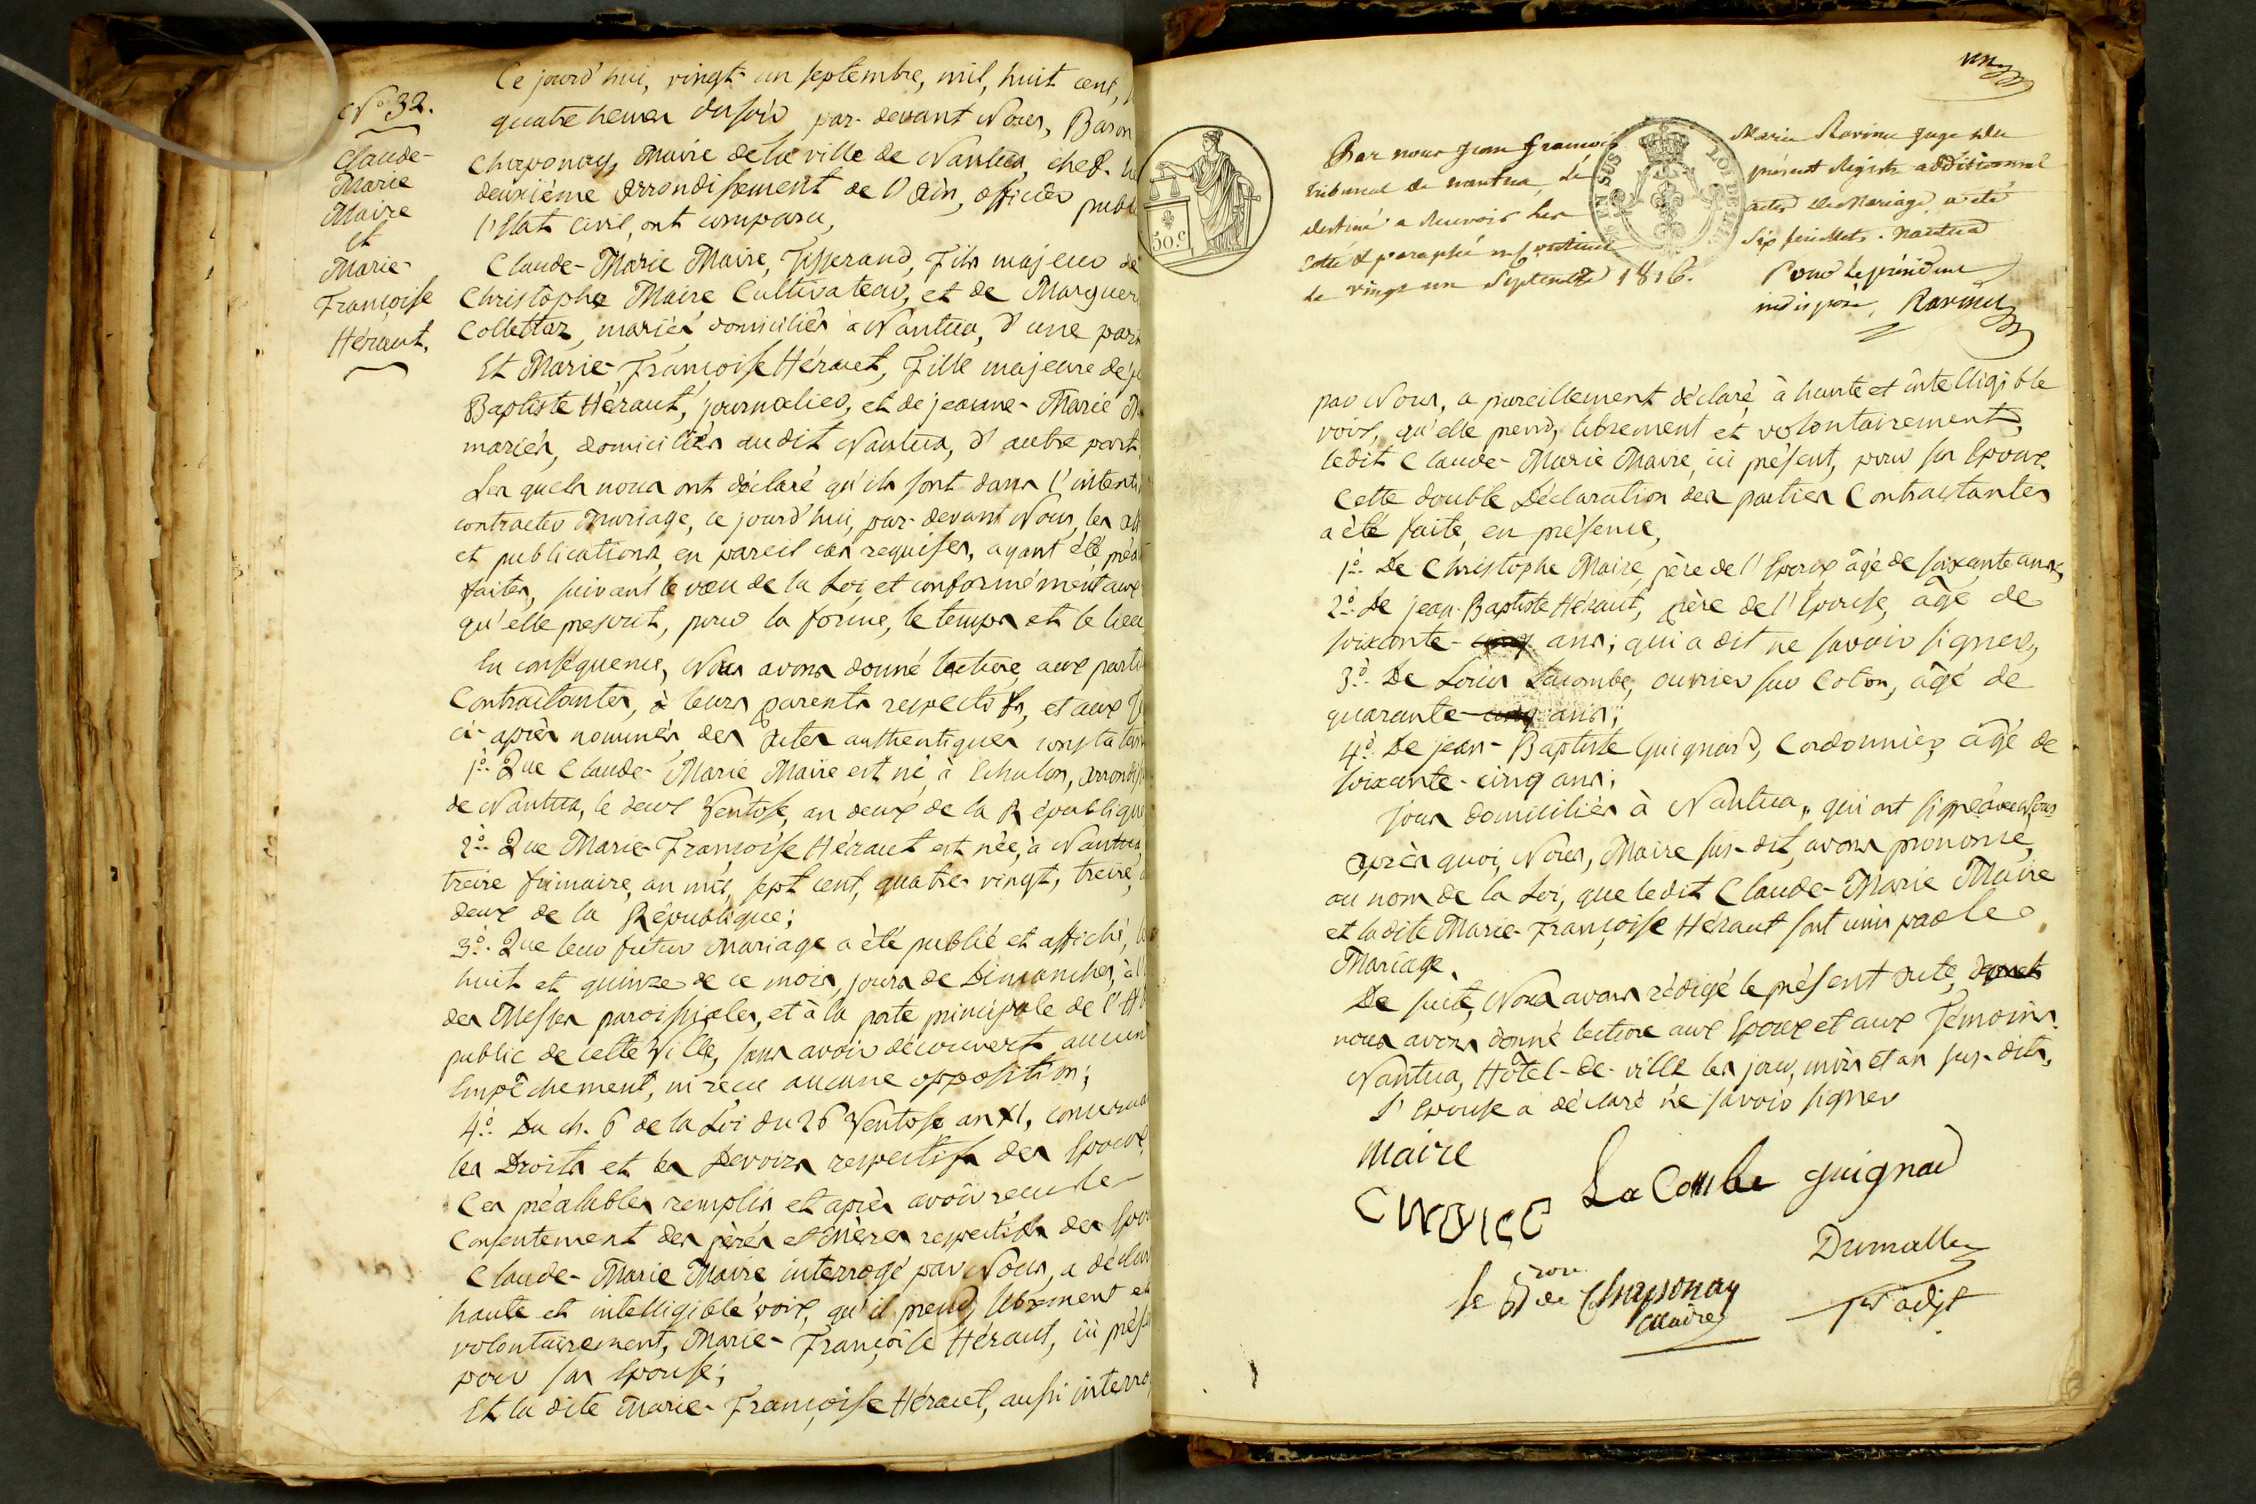 N.º 32.
Claude-
Marie
Maire
et
Marie-
Françoise
Héraut.
Ce jourd'hui, vingt-un septembre, mil, huit cent,
quatre heures du soir, par-devant Nous, Baron
Chaponay, Maire de la ville de Nantua, chef-
deuxième arrondissement de l'Ain, officier publ
l'Etat civil, ont comparu,
Claude-Marie Maire, Tisserand, Fils majeur de
Christophe Maire Cultivateur, et de Marguer
Collettaz, mariés, domiciliés à Nantua, d'une part
Et Marie-Françoise Héraut, Fille majeure de
Baptiste Héraut, journalier, et de jeanne-Marie
mariés, domiciliés audit Nantua, d'autre part
Les quels nous ont déclaré qu'ils sont dans l'intenti
contracter Mariage, ce jourd'hui, par-devant Nous, les
et publications, en pareil cas requises, ayant été préa
faites, suivant le vœu de la Loi, et conformément aux
qu'elle prescrit, pour la forme, le temps et le lieu
En conséquence, Nous avons donné lecture, aux parti
Contractantes, à leurs parents respectifs, et aux
ci-après nommés des actes authentiques constatan
1.º Que Claude-Marie Maire est né, à Echalon, arrondiss
de Nantua, le deux Ventose, an deux de la République
2.º Que Marie-Françoise Héraut est née, à Nantua
treize frimaire, an mil, sept cent, quatre-vingt, treize,
deux de la République;
3.º Que leur futur Mariage a été publié et affiché, le
huit et quinze de ce mois, jours de Dimanches, à l'
des Messes paroissiales, et à la porte principale de l'H
public de cette Ville, sans avoir découvert aucun
Empêchement, ni reçu aucune opposition;
4.º Du ch. 6 de la Loi du 26 Ventose an XI, concerna
les Droits et les Devoirs respectifs des Epoux.
Ces préalables remplis et après avoir reçu le
Consentement des pères et Mères respectifs des Epo
Claude-Marie Maire interrogé par Nous, a déclar
haute et intelligible voix, qu'il prend, librement et
volontairement, Marie-Françoise Héraut, ici prés
pour son Epouse;
Et la dite Marie-Françoise Héraut, aussi interro
un
50.c
EN SUS
LOI DE
Par nous Jean François Marie Ravinet Juge du
tribunal de nantua, le présent Registre additionnel
destiné a Recevoir les actes de Mariage a été
Cotté & paraphé en six feuillets. Nantua
le vingt un Septembre 1816. Pour le président
indisposé, Ravinet
par Nous, a pareillement déclaré à haute et intelligible
voix, qu'elle prend, librement et volontairement,
ledit Claude-Marie Maire, ici présent, pour son Epoux.
Cette double Déclaration des parties Contractantes
a été faite, en présence,
1.º De Christophe Maire, père de l'Epoux âgé de soixante ans,
2.º De jean-Baptiste Héraut, père de l'Epouse, âgé de
soixante-cinq ans; qui a dit ne savoir signer,
3.º De Louis Lacombe, ouvrier sur Coton, âgé de
quarante-cinq ans;
4.º De jean-Baptiste Guignard, Cordonnier, âgé de
soixante-cinq ans;
Tous domiciliés à Nantua, qui ont signé avec Nous
Après quoi, Nous, Maire sus-dit, avons prononcé,
au nom de la Loi, que ledit Claude-Marie Maire
et ladite Marie-Françoise Héraut sont unis par le
Mariage.
De suite, Nous avons rédigé le présent acte, dont
nous avons donné lecture aux Epoux et aux Témoins.
Nantua, Hôtel-de-ville les jour, mois et an sus-dits,
L'Epouse a déclaré ne savoir signer
Maire
LaCombe Guignard
Dumollard
1er adjt
le Bon de Chaponay
Maire